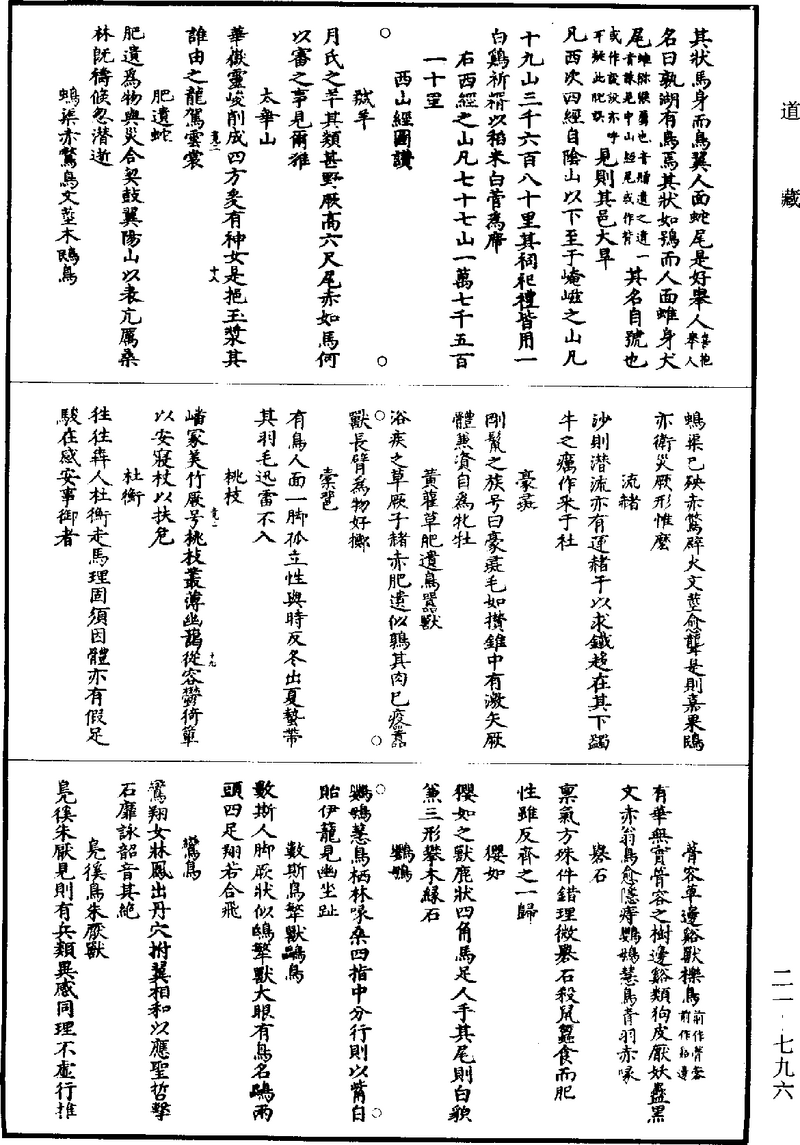 道藏
其狀馬身而鳥翼人面蛇尾是好舉人喜抱舉人
名曰孰湖有鳥焉其狀如鴞而人面蜼身犬
尾蜼獼猴屬也音贈遺之遺一音誄見中山經尾或作皆其名自號也
或作設設亦呼耳疑此脫誤見則其邑大旱
凡西次四經自陰山以下至于崦嵫之山凡
十九山三千六百八十里其祠祀禮皆用一
白鷄祈糈以稻米白菅為席
右西經之山凡七十七山一萬七千五百
一十里
西山經圖讚
羬羊
月氏之羊其類甚野厥高六尺尾赤如馬何
以審之事見爾雅
太華山
華嶽靈峻削成四方爰有神女是挹玉漿其
誰由之龍駕雲裳
肥遺蛇
肥遺為物與災合契鼓翼陽山以表亢厲桑
林既禱倏忽潛逝
鴖渠赤鷩鳥文莖木鴟鳥
鴖渠已殃赤鷩辟火文莖愈聾是則嘉果鴟
亦衛災厥形惟麼
流赭
沙則潛流亦有運赭于以求鐵趁在其下蠲
牛之癘作采于社
豪彘
剛鬣之族号曰豪彘毛如攢錐中有激矢厥
體兼資自為牝牡
黃雚草肥遺鳥嚻獸
浴疾之草厥子赭赤肥遺似鶉其肉已疫嚻
獸長臂為物好擲
橐𩇯
有鳥人面一脚孤立性與時反冬出夏蟄帶
其羽毛迅雷不入
桃枝
嶓冢美竹厥号桃枝叢薄幽藹從容鬱猗簟
以安寢杖以扶危
杜衡
狌狌犇人杜衡走馬理固須因體亦有假足
駿在感安事御者
菅容草邊谿獸櫟鳥前作菅蓉前作谿邊
有華無實菅容之樹邊谿類狗皮厭妖蠱黑
文赤翁鳥愈隱痔鸚鵡慧鳥青羽赤喙
礜石
稟氣方殊件錯理微礜石殺鼠蠶食而肥
性雖反齊之一歸
玃如
玃如之獸鹿狀四角馬足人手其尾則白貌
兼三形攀木緣石
鸚鵡
鸚鵡慧鳥栖林喙桑四指中分行則以觜自
貽伊籠見幽坐趾
數斯鳥擎獸鸓鳥
數斯人脚厥狀似鴟擎獸大眼有鳥名鸓兩
頭四足翔若合飛
鸞鳥
鸞翔女牀鳳出丹穴拊翼相和以應聖哲擊
石靡詠韶音其絕
鳧徯鳥朱厭獸
鳧徯朱厭見則有兵類異感同理不虛行推
二一-七九六